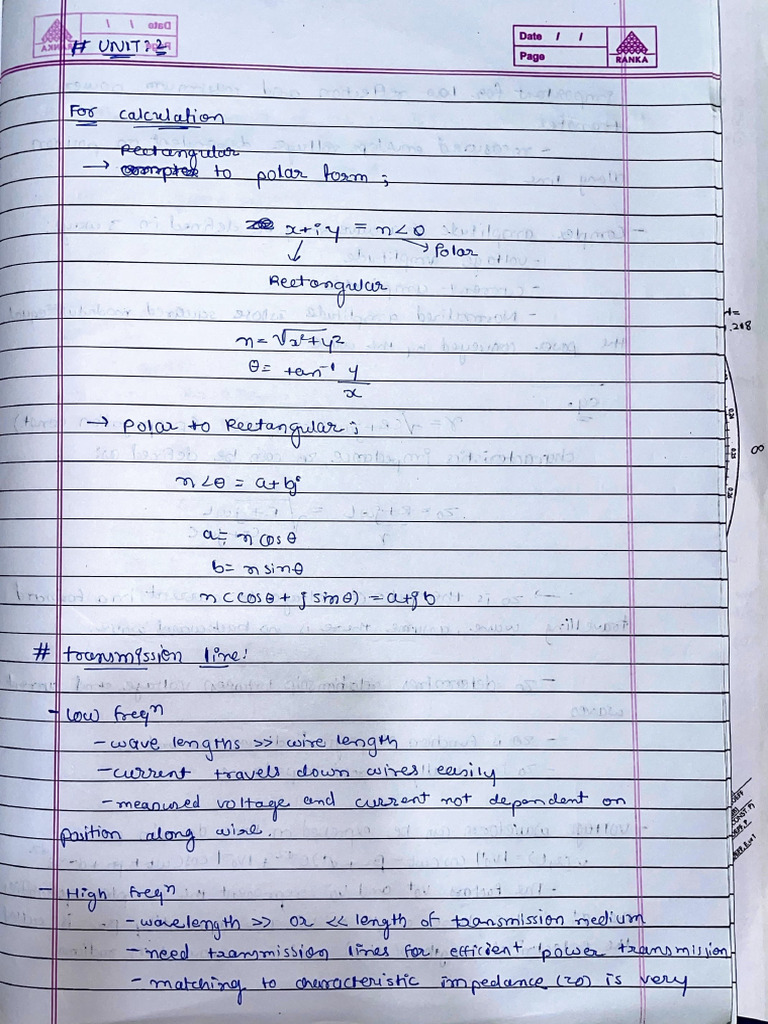 # UNIT: 2
Date / /
Page
RANKA
For calculation
Rectangular
→ to polar form;
x+jy = r<θ
Polar
Rectangular
r = √x²+y²
θ = tan⁻¹ y/x
→ Polar to Rectangular;
r<θ = a+bj
a = r cosθ
b = r sinθ
r(cosθ + j sinθ) = a+jb
# transmission line:
- Low freqⁿ
- wave lengths >> wire length
- current travels down wires easily
- measured voltage and current not dependent on
position along wire.
- High freqⁿ
- wavelength >> or << length of transmission medium
- need transmission lines for efficient power transmission
- matching to characteristic impedance (zo) is very